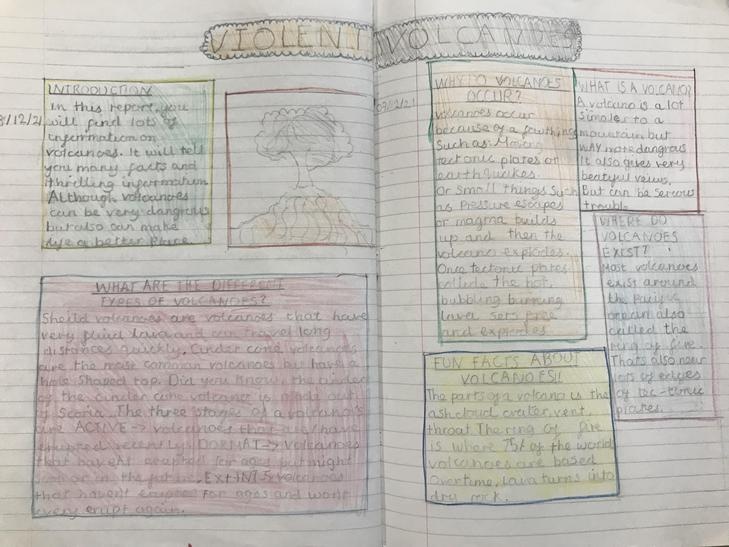 VIOLENT VOLCANOES
8/12/21
INTRODUCTION
In this report, you
will find lots of
information on
volcanoes. It will tell
you many facts and
thrilling information.
Although volcanoes
can be very dangrous
but also can make
life a better place.
WHAT ARE THE DIFFERENT
TYPES OF VOLCANOES?
Sheild volcanoes are volcanoes that have
very fluid lava and can travel long
distances quickly. Cinder cone volcanoes
are the most common volcanoes but have a
hole shaped top. Did you know, the cinder
of the cinder cone volcano is made out
of Scoria. The three stages of a volcano
are ACTIVE -> volcanoes that are/have
erupted recently, DORMAT -> volcanoes
that havent erupted for ages but might
in the future, EXTINT 5 volcanoes
that havent erupted for ages and wont
every erupt again.
09/12/21
WHY DO VOLCANOES
OCCUR?
Volcanoes occur
because of a few things
Such as: Moving
tectonic plates or
earthquakes.
Or small things such
as pressure escapes
or magma builds
up and then the
volcano explodes.
Once tectonic plates
collide the hot,
bubbling burning
lava sets free
and explodes.
FUN FACTS ABOUT
VOLCANOES!!
The parts of a volcano is the
ash cloud, crater, vent,
throat. The ring of fire
is where 75% of the world
volcanoes are based
Overtime, lava turns into
dry rock.
WHAT IS A VOLCANO?
A volcano is a lot
similer to a
mountain but
way more dangrous
It also gives very
beatyful views,
But can be serious
trouble.
WHERE DO
VOLCANOES
EXIST?
Most volcanoes
exist around
the Pacific
ocean also
called the
ring of fire.
Thats also near
lots of edges
of tec-tonic
plates.